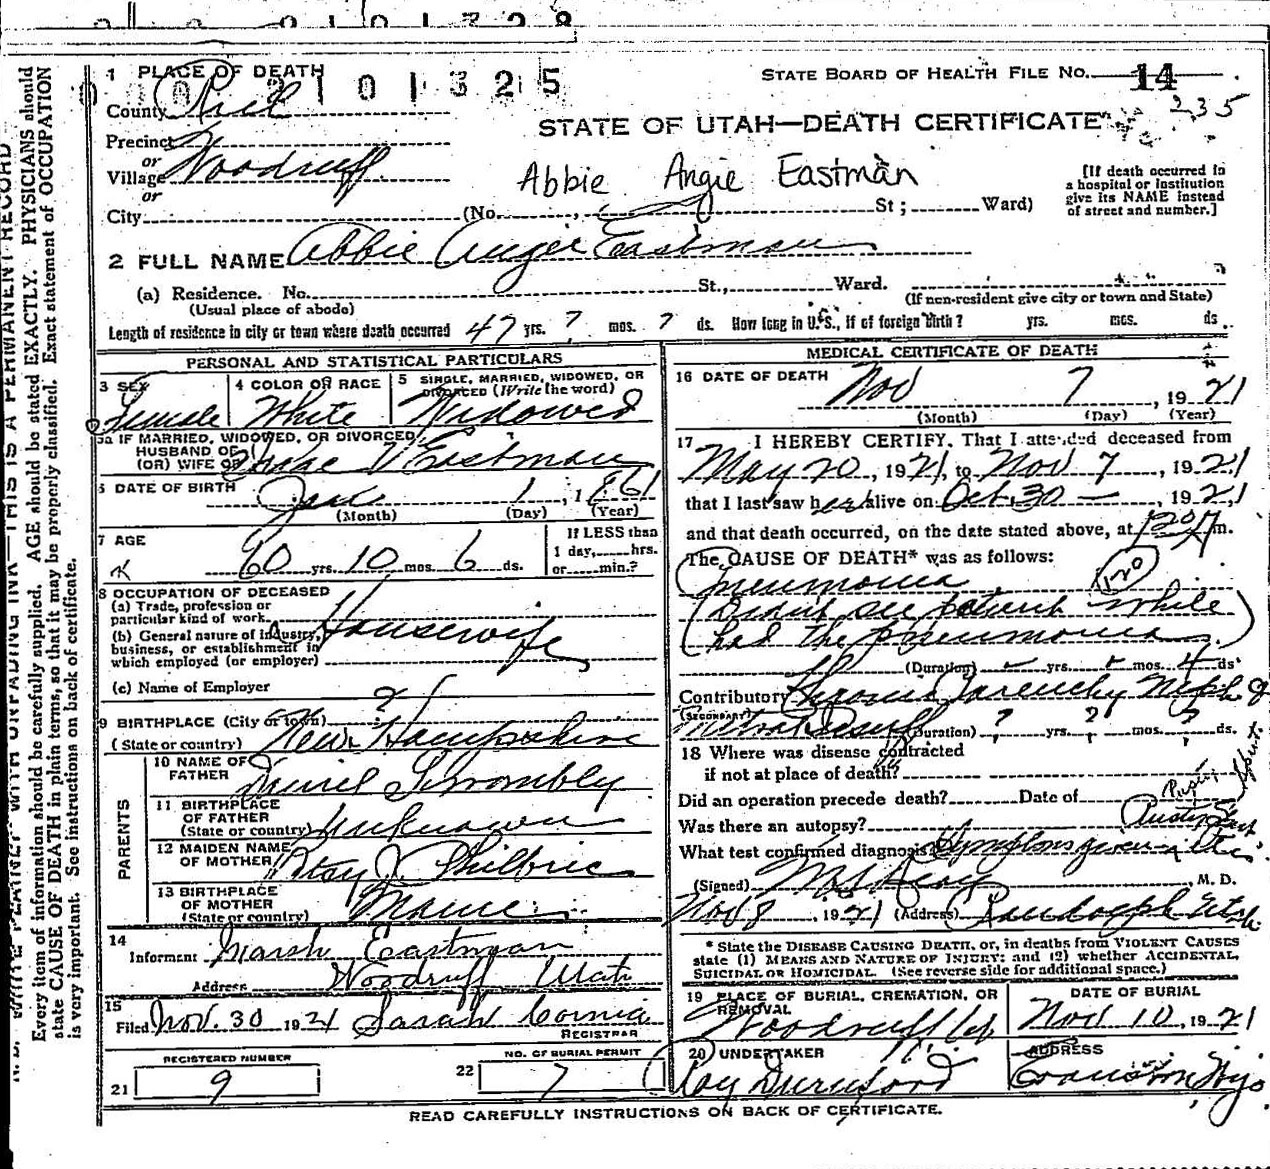 1 PLACE OF DEATH
0 0 2 1 0 1 3 2 5
STATE BOARD OF HEALTH FILE NO. 14
235
County Rich
STATE OF UTAH—DEATH CERTIFICATE
Precinct
or
Village Woodruff
or
City
Abbie Angie Eastman
(No. St; Ward)
[If death occurred in
a hospital or institution
give its NAME instead
of street and number.]
2 FULL NAME Abbie Angie Eastman
(a) Residence. No. St., Ward.
(Usual place of abode)
(If non-resident give city or town and State)
Length of residence in city or town where death occurred 47 yrs. ? mos. ? ds. How long in U.S., if of foreign birth? yrs. mos. ds.
PERSONAL AND STATISTICAL PARTICULARS
3 SEX
Female
4 COLOR OR RACE
White
5 SINGLE, MARRIED, WIDOWED, OR
DIVORCED (Write the word)
Widowed
5a IF MARRIED, WIDOWED, OR DIVORCED
HUSBAND OF
(OR) WIFE OF Eastman
6 DATE OF BIRTH
Jan 1, 1861
(Month) (Day) (Year)
7 AGE
60 yrs. 10 mos. 6 ds.
If LESS than
1 day, hrs.
or min.?
8 OCCUPATION OF DECEASED
(a) Trade, profession or
particular kind of work
Housewife
(b) General nature of industry,
business, or establishment in
which employed (or employer)
(c) Name of Employer
9 BIRTHPLACE (City or town)
(State or country) New Hampshire
PARENTS
10 NAME OF
FATHER
11 BIRTHPLACE
OF FATHER
(State or country) Unknown
12 MAIDEN NAME
OF MOTHER Betsy J. Philbric
13 BIRTHPLACE
OF MOTHER
(State or country) Maine
14
Informent Marsh Eastman
Address Woodruff Utah
15
Filed Nov. 30 1921 Sarah Cornia
REGISTRAR
REGISTERED NUMBER
21 9
NO. OF BURIAL PERMIT
22 7
MEDICAL CERTIFICATE OF DEATH
16 DATE OF DEATH
Nov 7, 1921
(Month) (Day) (Year)
17 I HEREBY CERTIFY, That I attended deceased from
May 20, 1921, to Nov 7, 1921
that I last saw her alive on Oct 30, 1921
and that death occurred, on the date stated above, at m.
The CAUSE OF DEATH* was as follows:
Pneumonia 120
(Didnt see patient while
had the pneumonia)
(Duration) yrs. mos. 4 ds.
Contributory
(SECONDARY)
(Duration) ? yrs. ? mos. ? ds.
18 Where was disease contracted
if not at place of death?
Did an operation precede death? Date of
Was there an autopsy?
What test confirmed diagnosis? Symptoms given
(Signed) M. D.
Nov 8, 1921 (Address) Randolph Utah
* State the DISEASE CAUSING DEATH, or, in deaths from VIOLENT CAUSES
state (1) MEANS AND NATURE OF INJURY; and (2) whether ACCIDENTAL,
SUICIDAL OR HOMICIDAL. (See reverse side for additional space.)
19 PLACE OF BURIAL, CREMATION, OR
REMOVAL
Woodruff
DATE OF BURIAL
Nov 10, 1921
20 UNDERTAKER
Roy Durnford
ADDRESS
Evanston Wyo
READ CAREFULLY INSTRUCTIONS ON BACK OF CERTIFICATE.
Every item of information should be carefully supplied. AGE should be stated EXACTLY. PHYSICIANS should
state CAUSE OF DEATH in plain terms, so that it may be properly classified. Exact statement of OCCUPATION
is very important. See instructions on back of certificate.